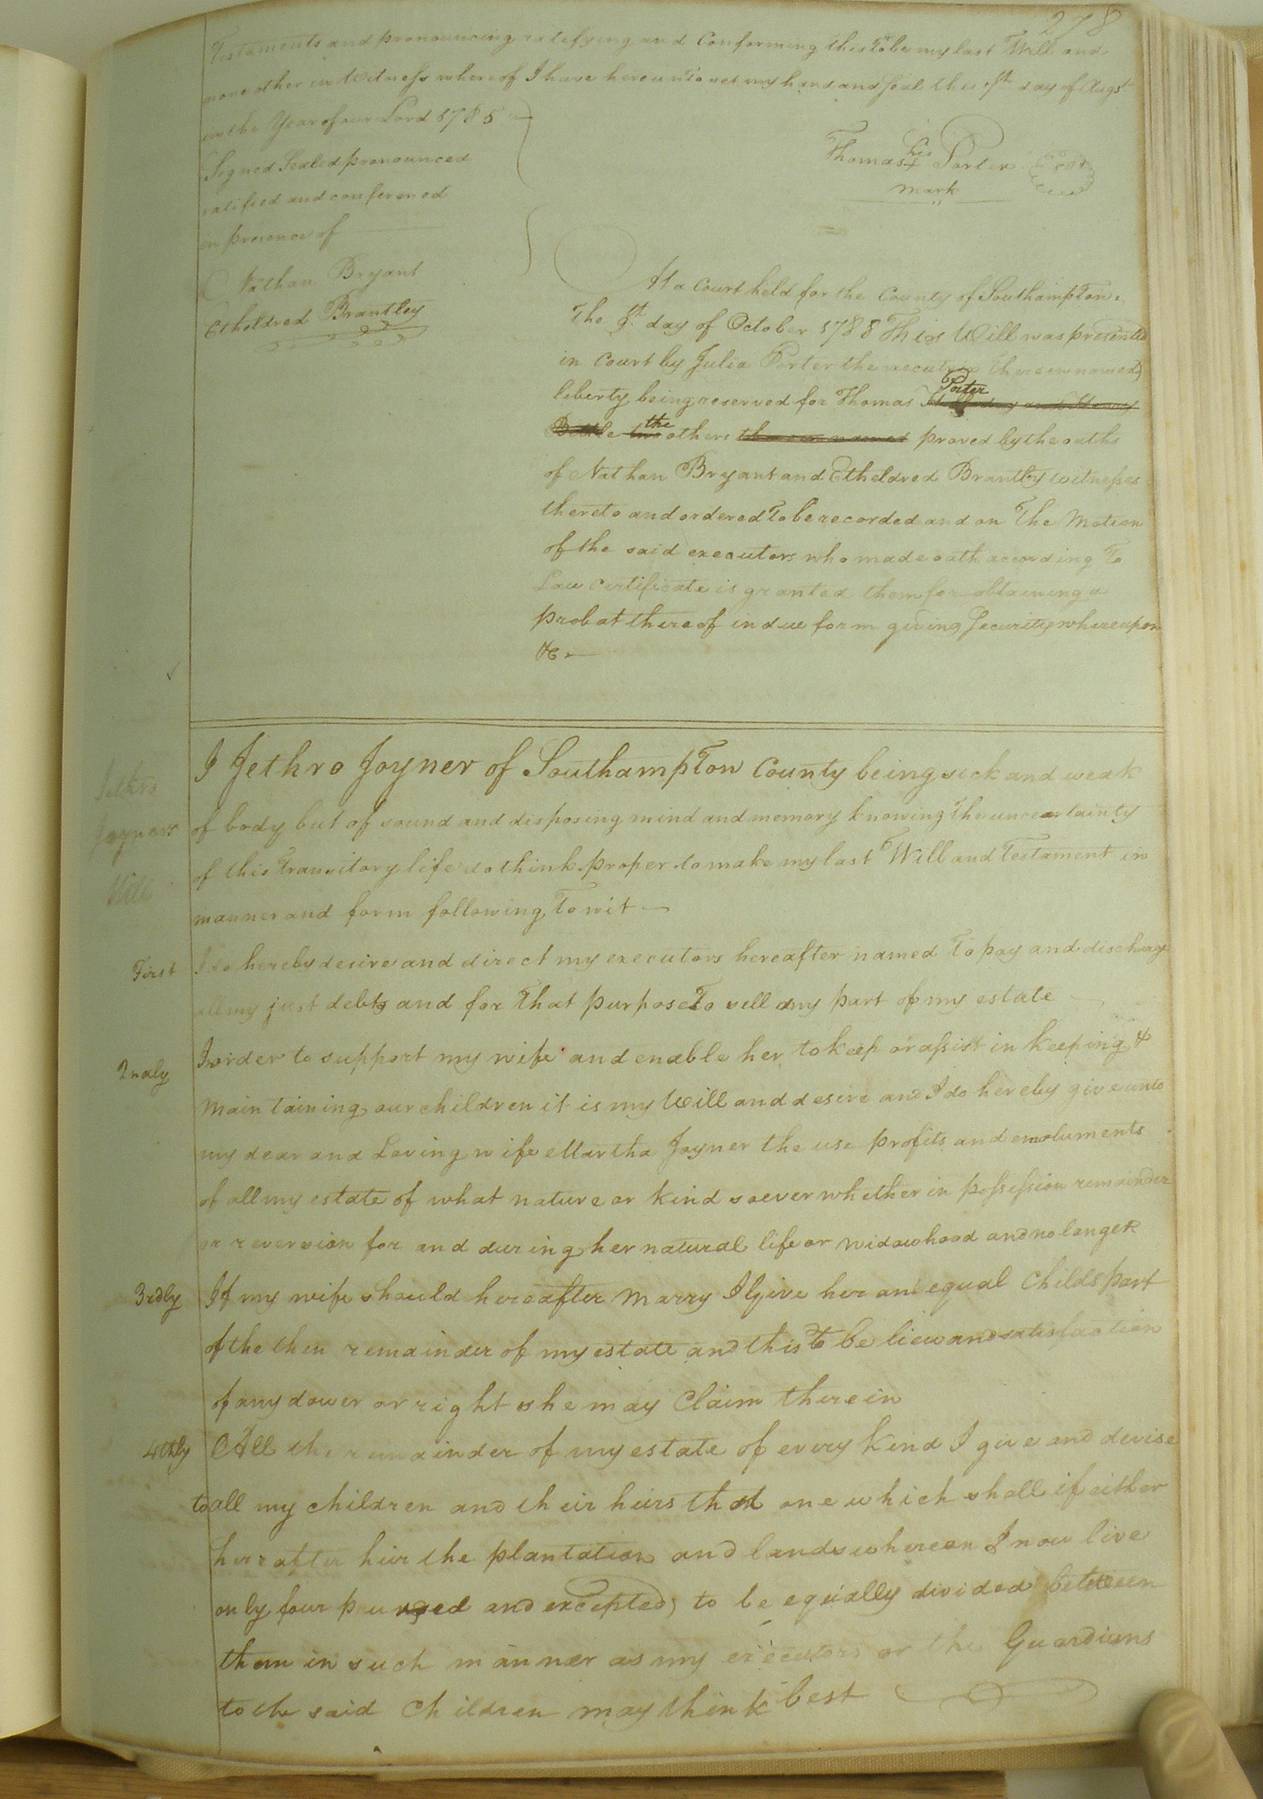 278
Testaments and pronouncing ratifying and Conforming this To be my last Will and
none other in Witness whereof I have hereunto set my hand and seal this day of Augst
in the Year of our Lord 1785
Signed Sealed pronounced
ratified and conferened
in presence of
Nathan Bryant
Etheldred Brantley
Thomas his Porter Seal
mark
At a Court held for the County of Southampton
The 9th day of October 1788 This Will was presented
in Court by Julia Porter the executrix therein named
liberty being reserved for Thomas Porter
the others proved by the oaths
of Nathan Bryant and Etheldred Brantley witnesses
thereto and ordered To be recorded and on The Motion
of the said executors who made oath according To
Law certificate is granted them for obtaining a
probat thereof in due form giving Security whereupon
&c
Jethro
Joyners
Will
I Jethro Joyner of SouthampTon County being sick and weak
of body but of sound and disposing mind and memory knowing the uncertainty
of this Transitory life do think proper to make my last Will and Testament in
manner and form following, To wit
First I do hereby desire and direct my executors hereafter named To pay and discharge
all my just debts and for That purpose To sell any part of my estate
2ndly In order to support my wife and enable her to keep or assist in keeping &
Maintaining our children it is my Will and desire and I do hereby give unto
my dear and Loving wife Martha Joyner the use profits and emoluments
of all my estate of what nature or kind soever whether in possession remainder
or reversion for and during her natural life or widowhood and no longer
3rdly If my wife should hereafter Marry I give her an equal Childs part
of the then remainder of my estate and this To be lieu and satisfaction
of any dower or right she may Claim therein
4thly All the remainder of my estate of every kind I give and devise
to all my children and their heirs that one which shall if either
hereafter heir the plantation and lands whereon I now live
only four and excepted) to be equally divided between
them in such manner as my executors or the Guardians
to the said Children may think best